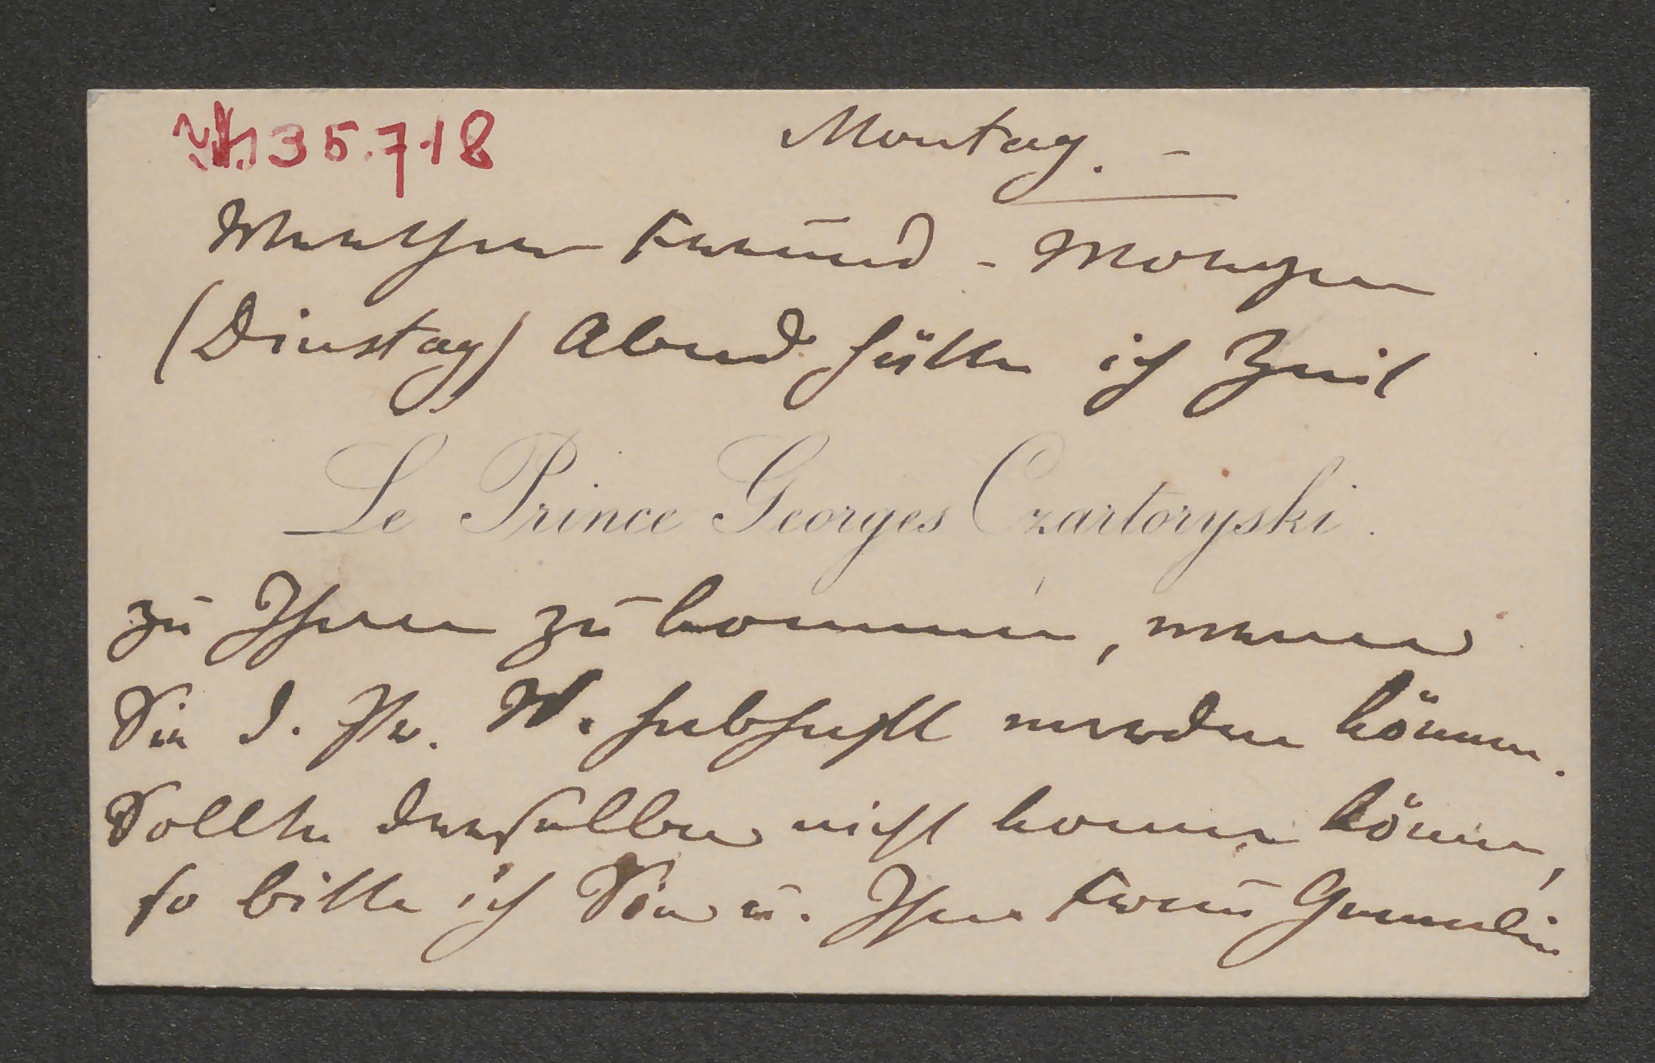 35.718
Montag. -
Werther Freund - Morgen
(Dinstag) Abend hätte ich Zeit
Le Prince Georges Czartoryski.
zu Ihnen zu kommen, wenn
Sie d. W. habhaft werden können.
Sollte derselbe nicht kommen können,
so bitte ich Sie u. Ihre Frau Gemalin